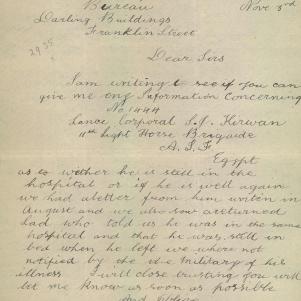 Bureau Nove 3rd
Darling Buildings
Franklin Street
2935
Dear Sirs
I am writing to see if you can
give me eny Information Concerning
No 1444
Lance Corporal S.J. Kirwan
11th Light Horse Brigade
A.I.F
Egypt
as to wether he is still in the
hospital or if he is well again
we had a letter from him writen in
August and we also sow a returned
Lad who told us he was in the same
hospital and that he was still in
bed when he left we where not
notified by the the Military of his
illness I will close trusting you will
let me know as soon as possible